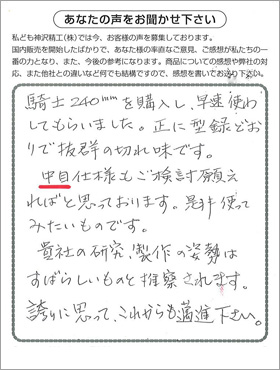 あなたの声をお聞かせ下さい
私ども神沢精工(株)では今、お客様の声を募集しております。
国内販売を開始したばかりで、あなた様の率直なご意見、ご感想が私たちの一
番の力となり、また、今後の参考になります。商品についての感想や弊社の対
応、また他社との違いなど何でも結構ですので、感想を書いてお送り下さい。
騎士240mmを購入し、早速使わ
してもらいました。正に型録どお
りで抜群の切れ味です。
中目仕様もご検討願え
ればと思っております。是非使って
みたいものです。
貴社の研究、製作の姿勢は
すばらしいものと推察されます。
誇りに思って、これからも邁進下さい。